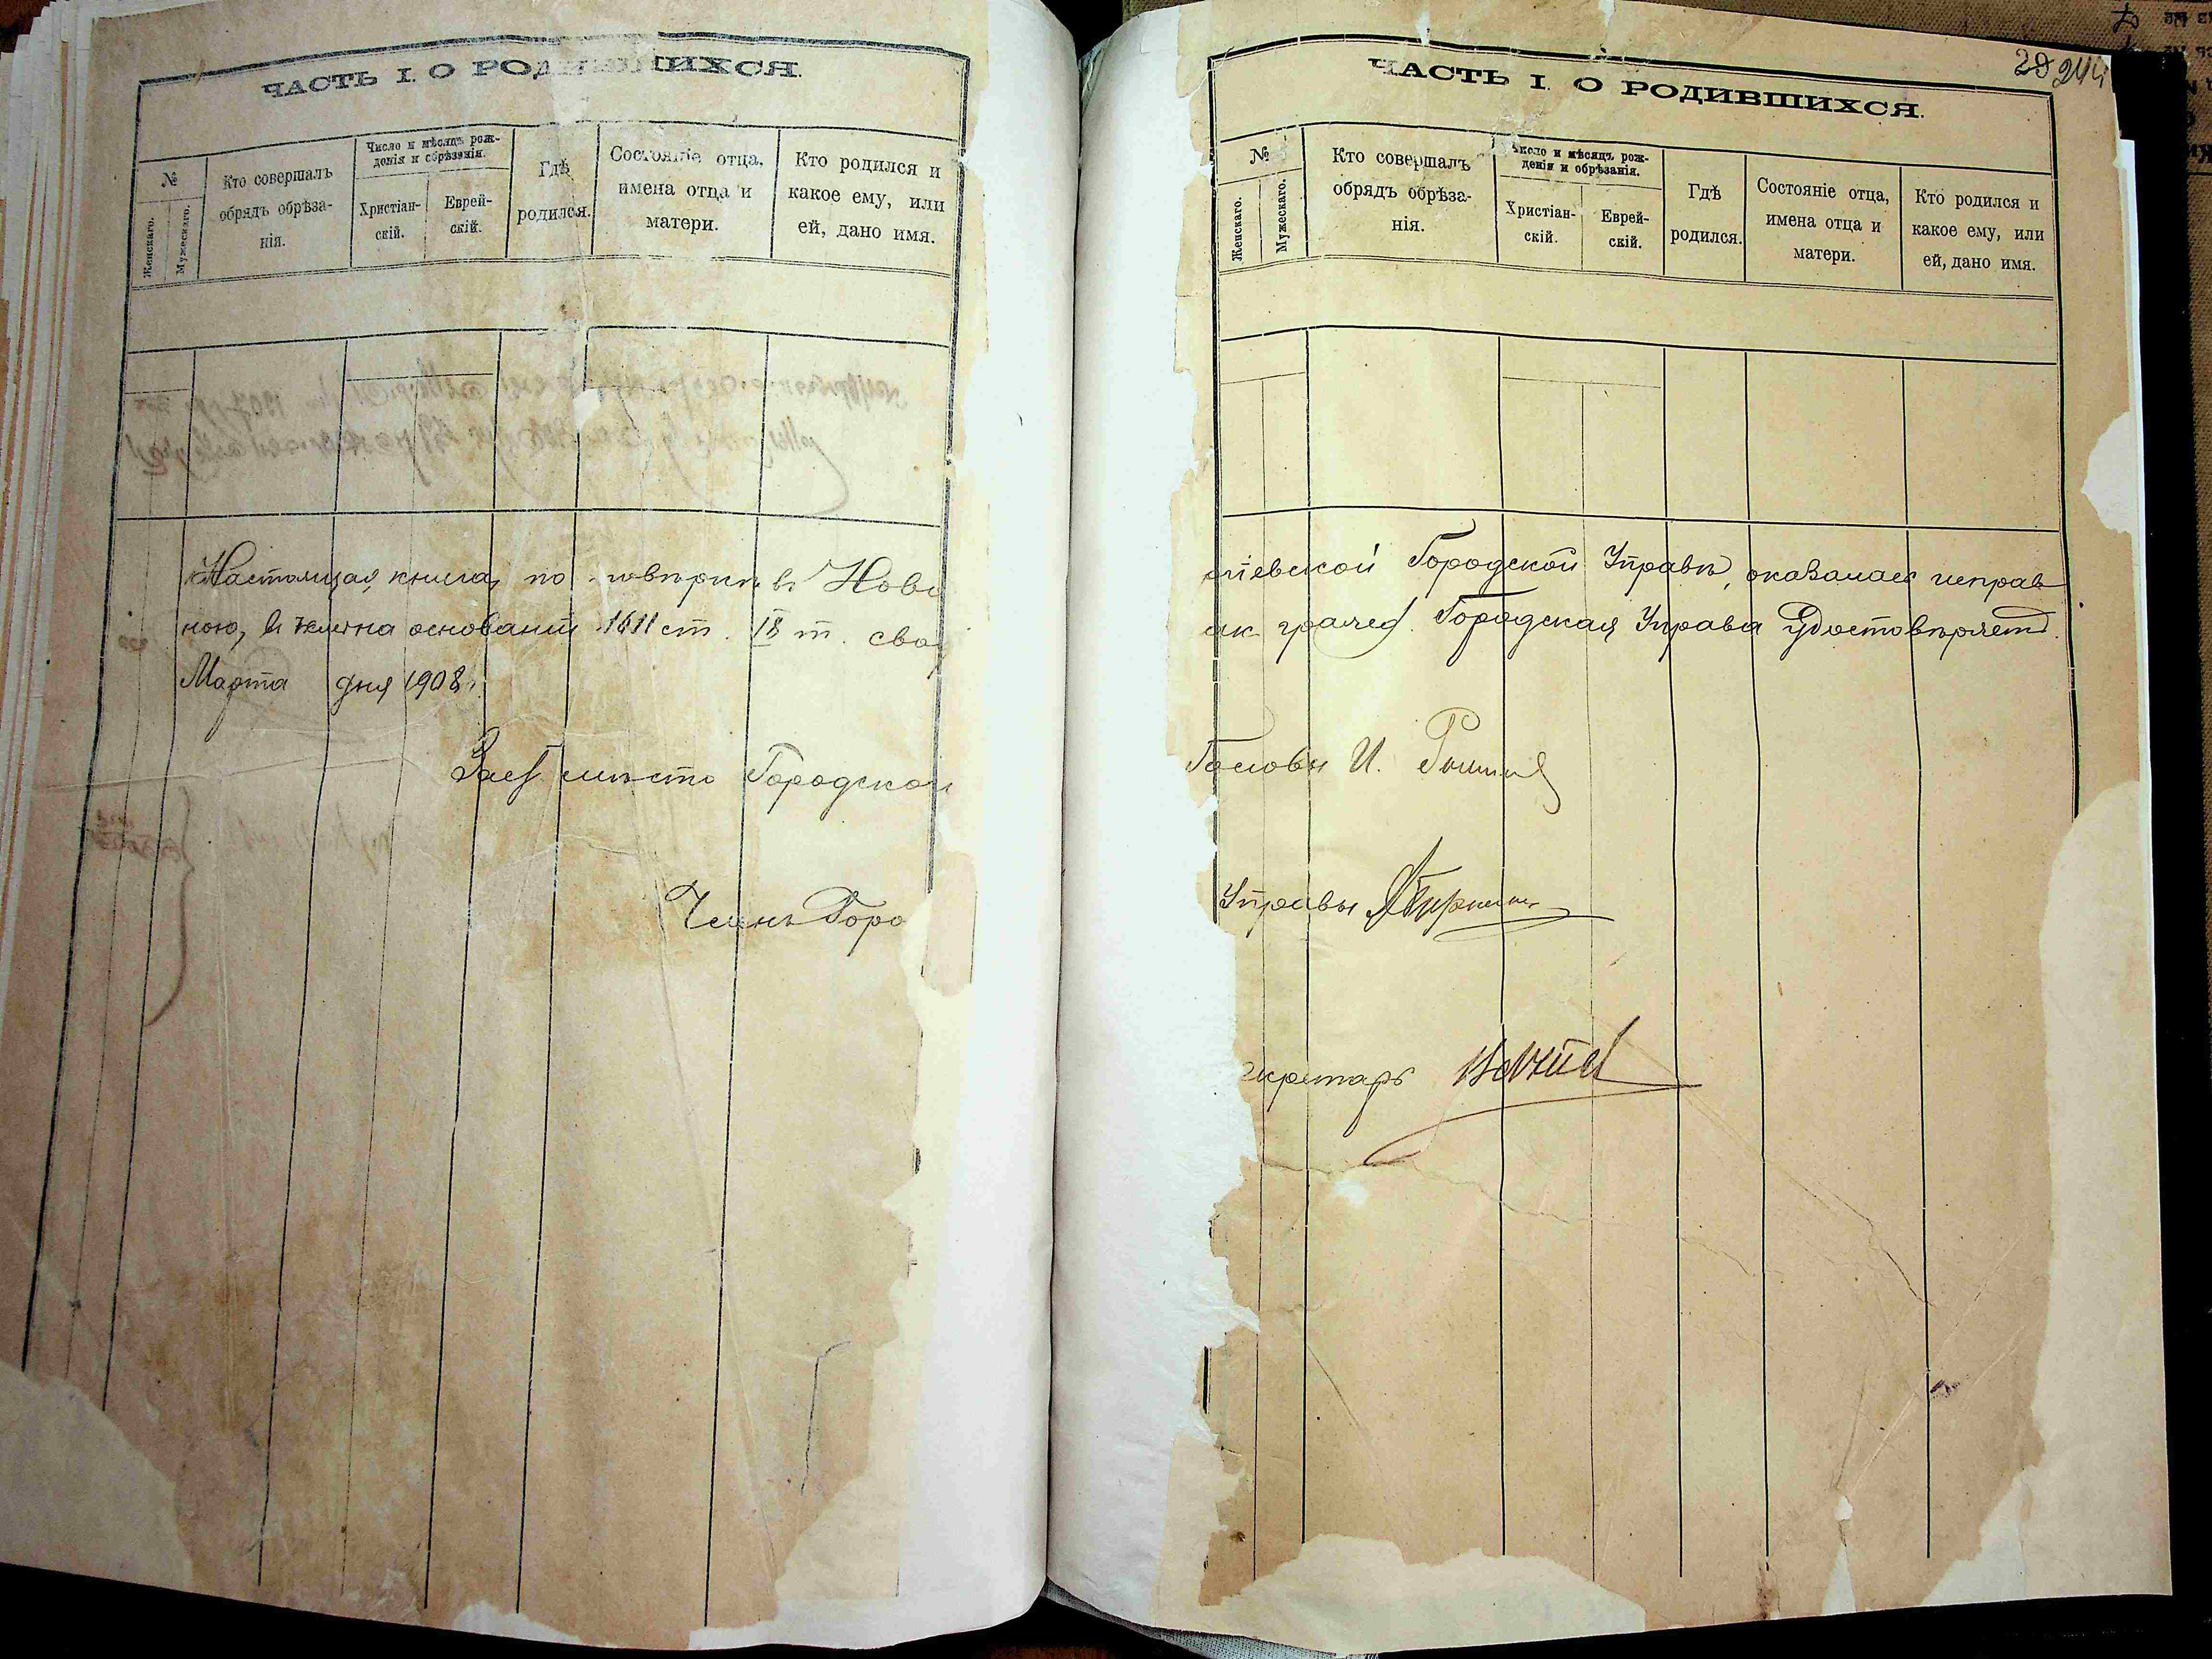 ЧАСТЬ I. О РОДИВШИХСЯ.
№
Женскаго.
Мужескаго.
Кто совершалъ
обрядъ обрѣза-
нія.
Число и мѣсяцъ рож-
денія и обрѣзанія.
Христіан-
скій.
Еврей-
скій.
Гдѣ
родился.
Состояніе отца,
имена отца и
матери.
Кто родился и
какое ему, или
ей, дано имя.
Настоящая книга, по повѣркѣ въ Ново
ною, въ чемъ на основаніи 1611 ст. IX т. сво
Марта дня 1908 г.
мѣсто Городской
Членъ Горо
29 244
ЧАСТЬ I. О РОДИВШИХСЯ.
№
Женскаго.
Мужескаго.
Кто совершалъ
обрядъ обрѣза-
нія.
Число и мѣсяцъ рож-
денія и обрѣзанія.
Христіан-
скій.
Еврей-
скій.
Гдѣ
родился.
Состояніе отца,
имена отца и
матери.
Кто родился и
какое ему, или
ей, дано имя.
Городской Управѣ, оказалась исправ
Городская Управа удостовѣряетъ.
Головы И.
Управы
екретарь